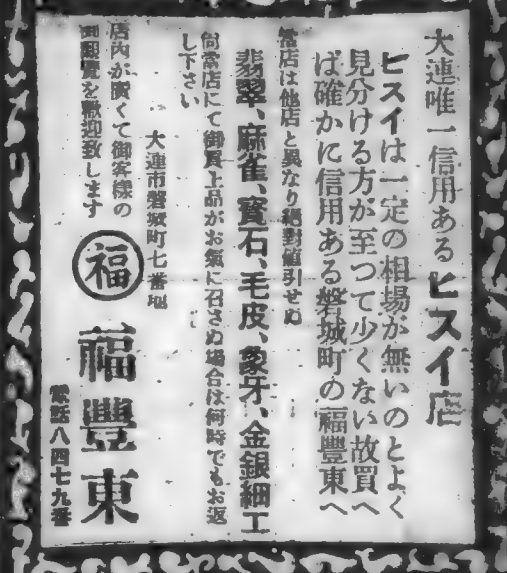 大連唯一信用あるヒスイ店
ヒスイは一定の相場が無いのとよく
見分ける方が至つて少くない故買へ
ば確かに信用ある磐城町の福豐東へ
當店は他店と異なり絕對値引せぬ
翡翠、麻雀、寳石、毛皮、象牙、金銀細工
尙當店にて御買上品がお氣に召さぬ場合は何時でもお返
し下さい
店內が廣くて御客樣の
御觀覽を歡迎致します
大連市磐城町七番地
福
福豐東
電話八四七九番